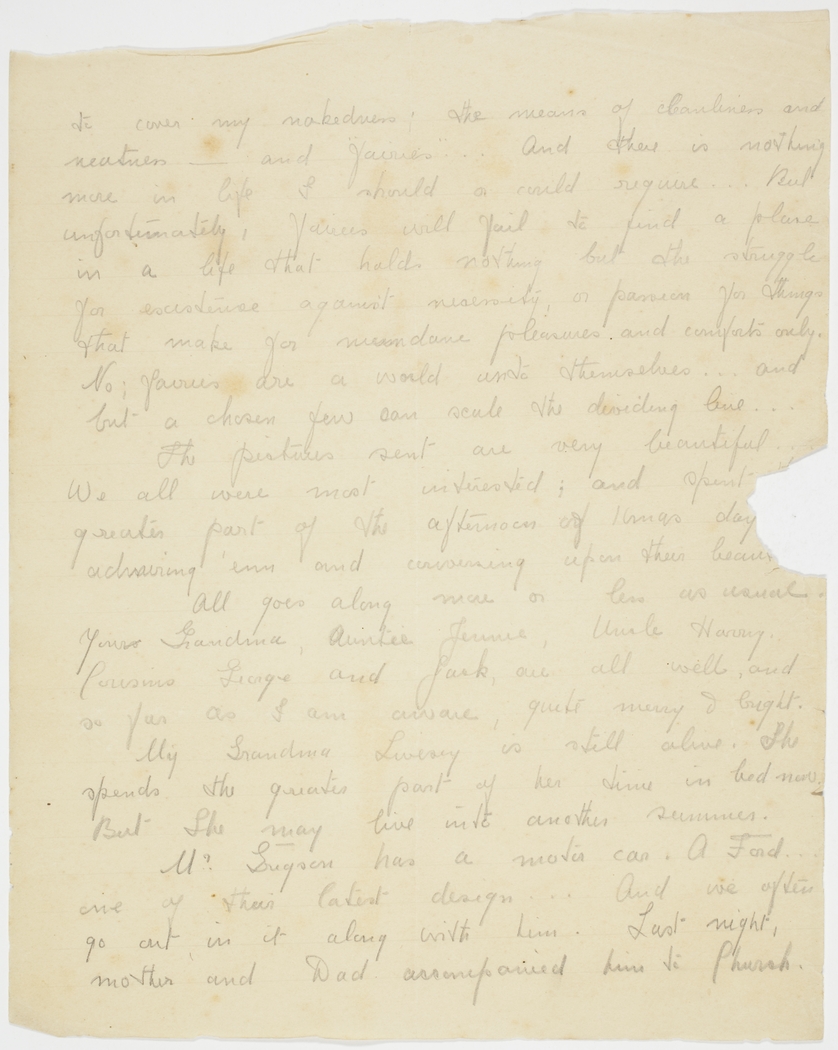 to cover my nakedness; the means of cleanliness and
neatness — and "fairies"... And there is nothing
more in life I should or could require... But
unfortunately, fairies will fail to find a place
in a life that holds nothing but the struggle
for existense against necessity, or passion for things
that make for mundane pleasures and comforts only.
No; fairies are a world unto themselves... and
but a chosen few can scale the dividing line...
The pictures sent are very beautiful...
We all were most interested; and spent
greater part of the afternoon of Xmas day
admiring 'em and conversing upon their
All goes along more or less as usual.
Yours Grandma, Auntie Jennie, Uncle Harry.
Cousins George and Jack, are all well, and
so far as I am aware, quite merry & bright.
My Grandma Livesey is still alive. She
spends the greater part of her time in bed now.
But She may live into another summer.
Mr. has a motor car. A Ford...
one of their latest design... And we often
go out in it along with him. Last night,
mother and Dad accompanied him to Church.